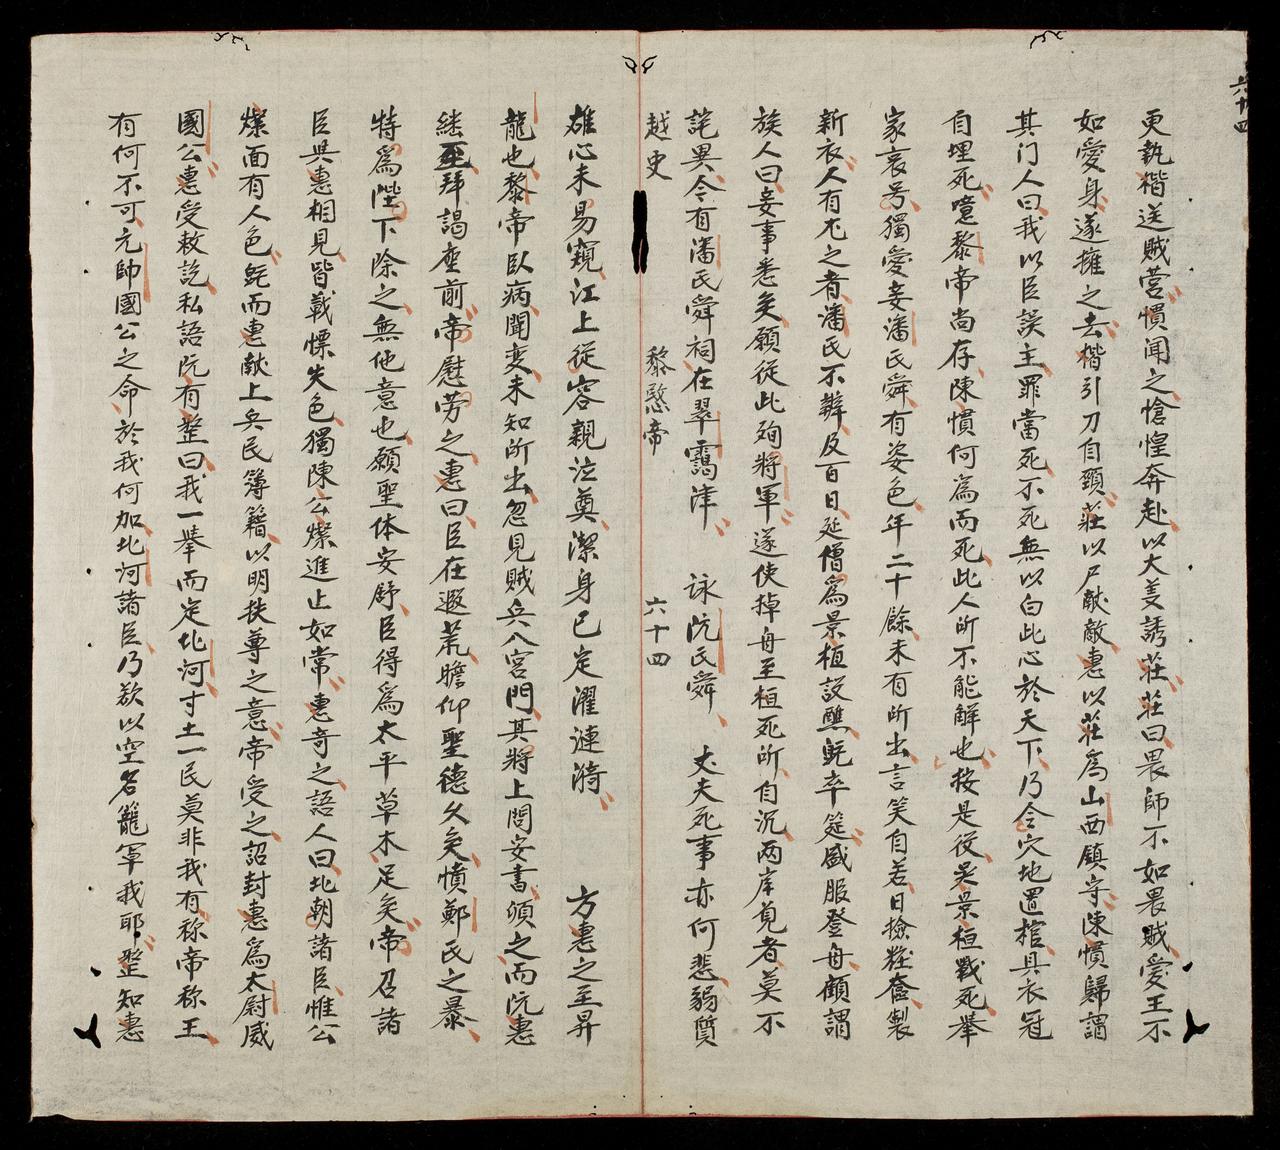 六十四
更執楷送賊营慣闻之愴惶奔赴以大美誘莊莊曰畏師不如畏賊愛王不
如愛身遂擁之去楷引刀自頸莊以尸献敵惠以莊為山西鎮守陳慣歸謂
其门人曰我以臣誤主罪當死不死無以白此心於天下乃令穴地置棺具衣冠
自埋死噫黎帝尚存陳慣何為而死此人所不能解也按是役吴景桓戰死舉
家哀号獨愛妾潘氏舜有姿色年二十餘未有所出言笑自若日撿粧奩製
新衣人有尤之者潘氏不辨及百日延僧為景桓設醮既卒筵盛服登舟顧謂
族人曰妾事悉矣願從此殉將軍遂使掉舟至桓死所自沉两岸覓者莫不
詫異今有潘氏舜祠在翠靄津 詠阮氏舜 丈夫死事亦何悲弱質
越史 黎愍帝 六十四
雄心未易窺江上從容親泣奠潔身已定濯漣漪 方惠之至昇
龍也黎帝臥病聞变未知所出忽見賊兵入宮門其將上問安書頒之而阮惠
継至拜謁座前帝慰劳之惠曰臣在遐荒瞻仰聖德久矣憤鄭氏之暴
特為陛下除之無他意也願聖体安舒臣得為太平草木足矣帝召諸
臣與惠相見皆戰慄失色獨陳公燦進止如常惠奇之語人曰北朝諸臣惟公
燦面有人色既而惠献上兵民簿籍以明扶尊之意帝受之詔封惠為太尉威
國公惠受敕訖私語阮有整曰我一舉而定北河寸土一民莫非我有称帝称王
有何不可元帥國公之命於我何加北河諸臣乃欲以空名籠罩我耶整知惠